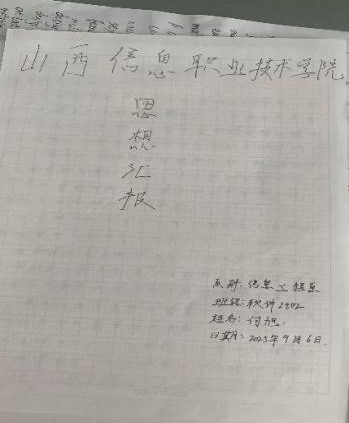 山西信息职业技术学院
思
想
汇
报
系别：信息工程系
班级：软件2402
姓名：何旭
日期：2025年9月6日